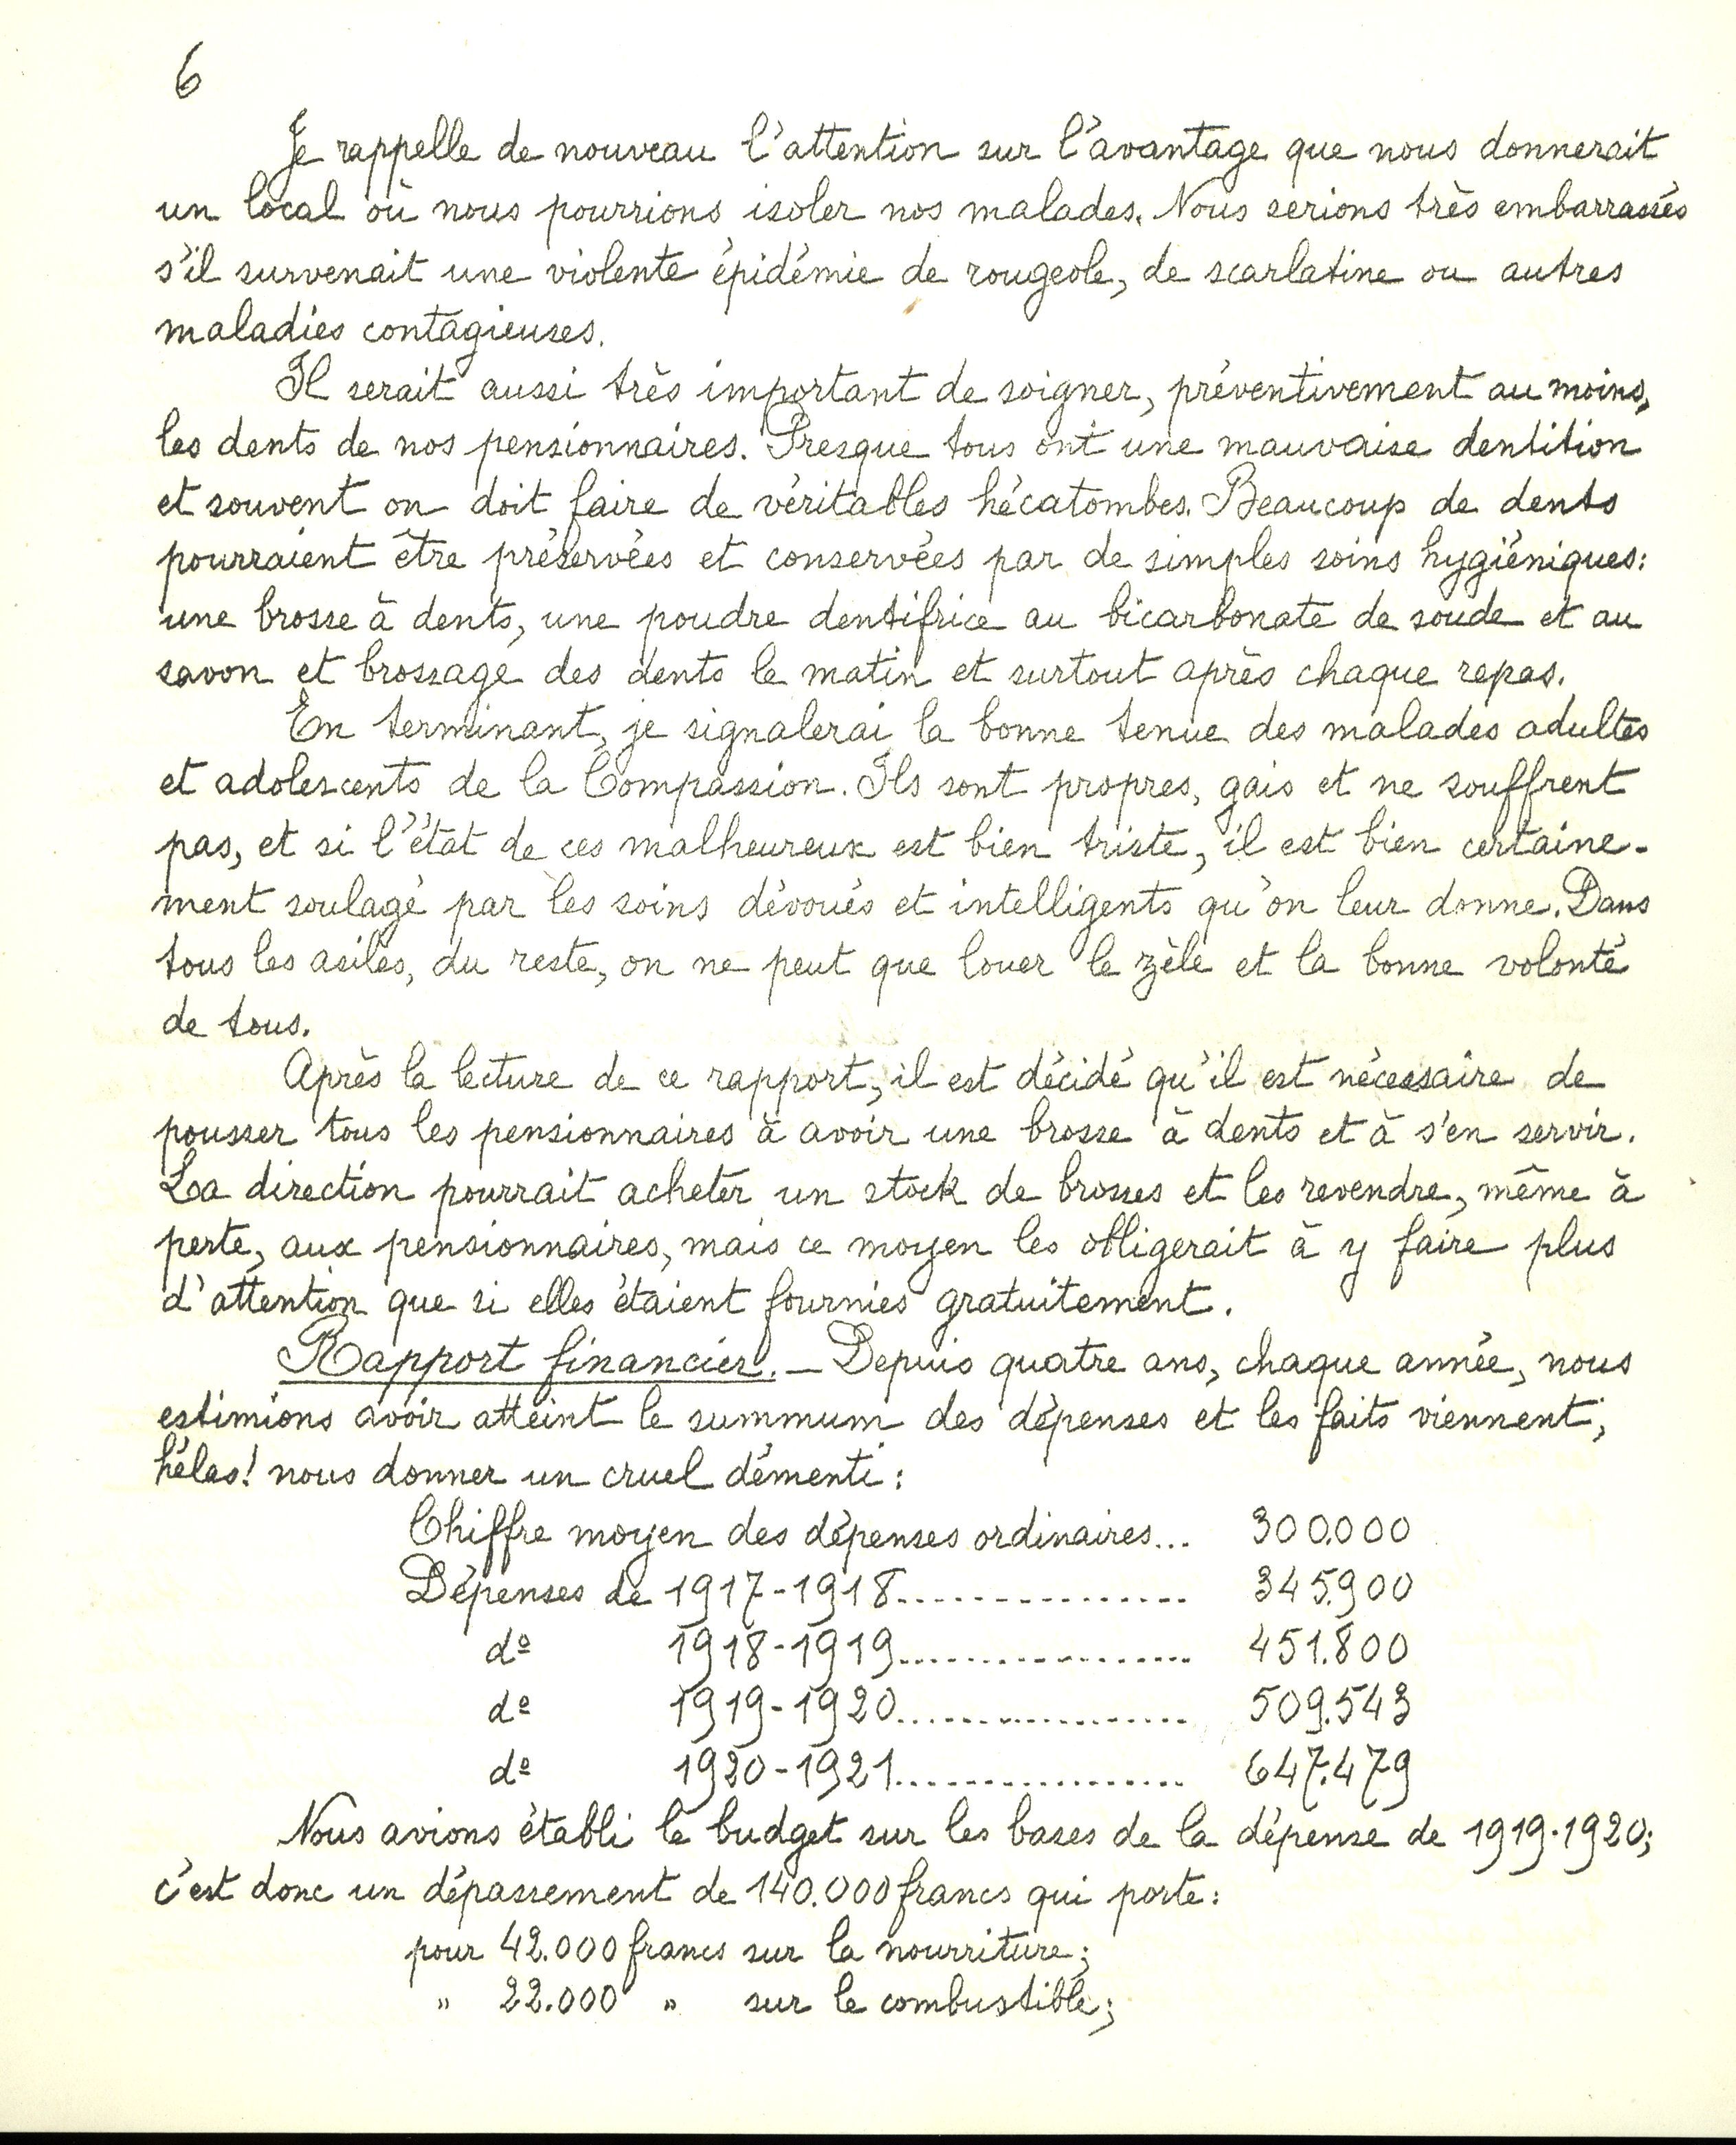 6
Je rappelle de nouveau l'attention sur l'avantage que nous donnerait
un local où nous pourrions isoler nos malades. Nous serions très embarrassés
s'il survenait une violente épidémie de rougeole, de scarlatine ou autres
maladies contagieuses.
Il serait aussi très important de soigner, préventivement au moins,
les dents de nos pensionnaires. Presque tous ont une mauvaise dentition
et souvent on doit faire de véritables hécatombes. Beaucoup de dents
pourraient être préservées et conservées par de simples soins hygiéniques:
une brosse à dents, une poudre dentifrice au bicarbonate de soude et au
savon et brossage des dents le matin et surtout après chaque repas.
En terminant, je signalerai la bonne tenue des malades adultes
et adolescents de la Compassion. Ils sont propres, gais et ne souffrent
pas, et si l'état de ces malheureux est bien triste, il est bien certaine-
ment soulagé par les soins dévoués et intelligents qu'on leur donne. Dans
tous les asiles, du reste, on ne peut que louer le zèle et la bonne volonté
de tous.
Après la lecture de ce rapport, il est décidé qu'il est nécessaire de
pousser tous les pensionnaires à avoir une brosse à dents et à s'en servir.
La direction pourrait acheter un stock de brosses et les revendre, même à
perte, aux pensionnaires, mais ce moyen les obligerait à y faire plus
d'attention que si elles étaient fournies gratuitement.
Rapport financier. — Depuis quatre ans, chaque année, nous
estimions avoir atteint le summum des dépenses et les faits viennent,
hélas! nous donner un cruel démenti:
Chiffre moyen des dépenses ordinaires... 300.000
Dépenses de 1917-1918................ 345.900
dº 1918-1919................ 451.800
dº 1919-1920................ 509.543
dº 1920-1921................ 647.479
Nous avions établi le budget sur les bases de la dépense de 1919-1920;
c'est donc un dépassement de 140.000 francs qui porte:
pour 42.000 francs sur la nourriture;
" 22.000 " sur le combustible;